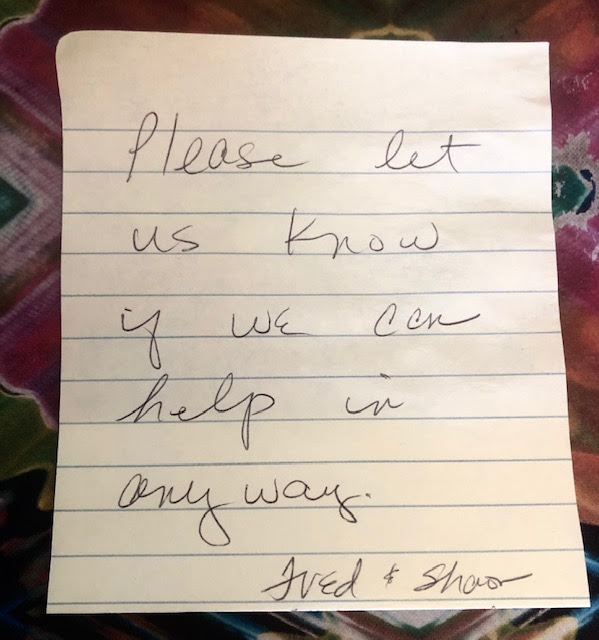 Please let
us know
if we can
help in
any way.
Fred & Shaor